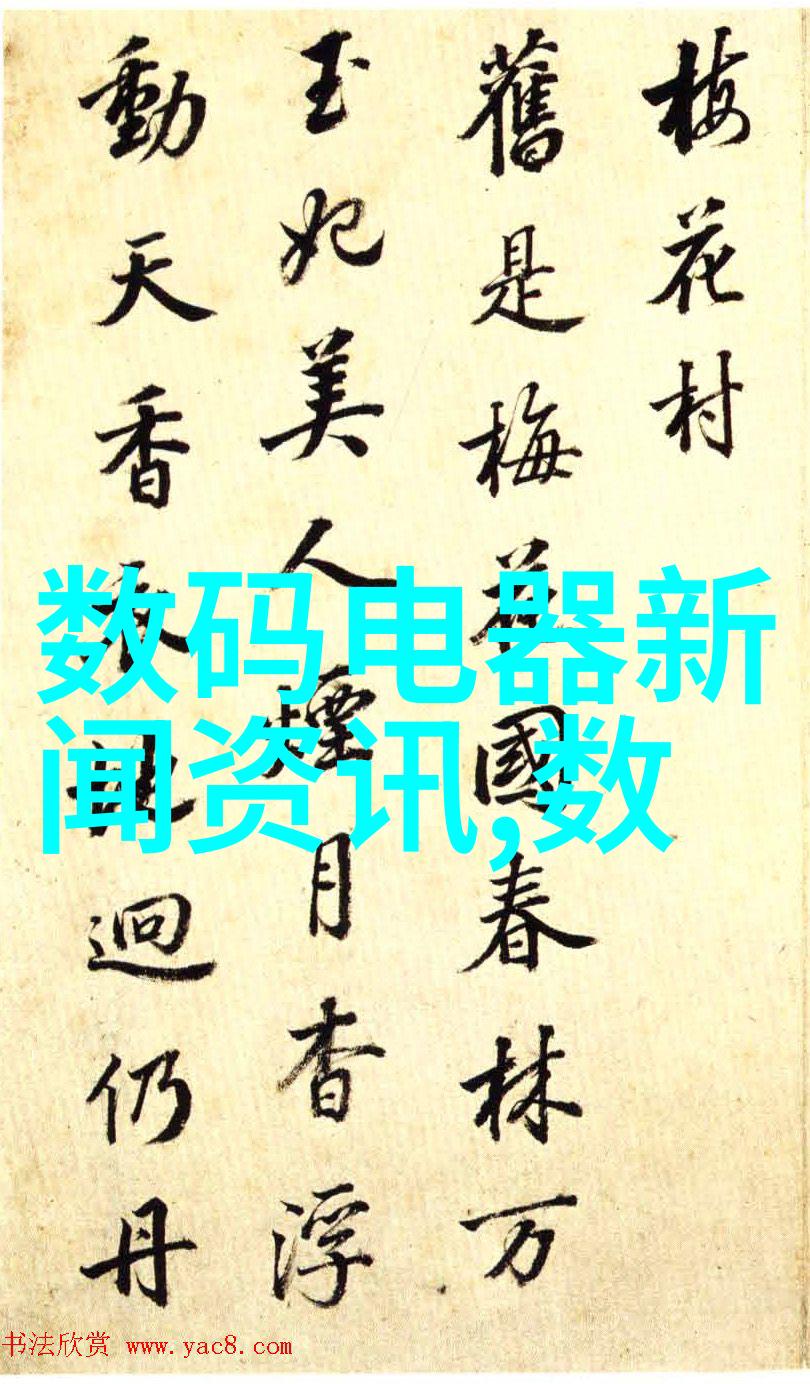 梅花村
舊是梅花國春林万
玉妃美人煙月杳浮
動天香迥仍丹
数码电器新
闻资讯,数
书法欣赏 www.yac8.com